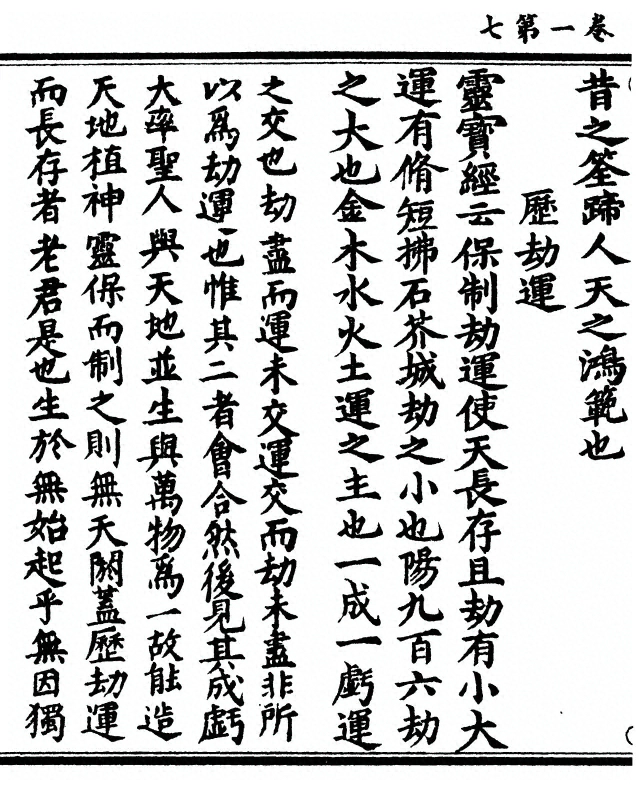 卷一第七
昔之筌蹄人天之鴻範也
歷劫運
靈寶經云保制劫運使天長存且劫有小大
運有脩短拂石芥城劫之小也陽九百六劫
之大也金木水火土運之主也一成一虧運
之交也劫盡而運未交運交而劫未盡非所
以爲劫運也惟其二者會合然後見其成虧
大率聖人與天地並生與萬物爲一故能造
天地植神靈保而制之則無天閼蓋歷劫運
而長存者老君是也生於無始起乎無因獨